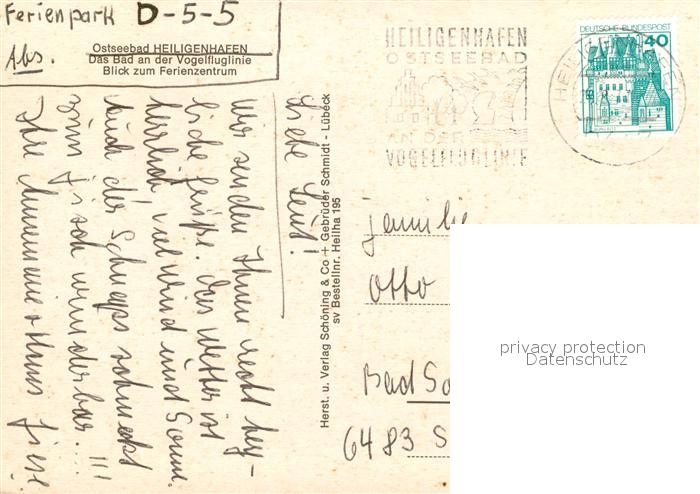 Ferienpark D-5-5
Abs.
Ostseebad HEILIGENHAFEN
Das Bad an der Vogelfluglinie
Blick zum Ferienzentrum
Liebe Leut!
Wir senden Ihnen recht herz-
liche Grüße. Das Wetter ist
herrlich, viel Wind und Sonne.
Auch der Schnaps schmeckt
zum Fisch wunderbar... !!!
Ihre Annemarie + Hans
Herst. u. Verlag Schöning & Co + Gebrüder Schmidt - Lübeck
sv Bestellnr. Heilha 195
HEILIGENHAFEN
OSTSEEBAD
AN DER
VOGELFLUGLINIE
DEUTSCHE BUNDESPOST
40
BURG ELTZ
Familie
Otto
Bad So
6483 S
privacy protection
Datenschutz